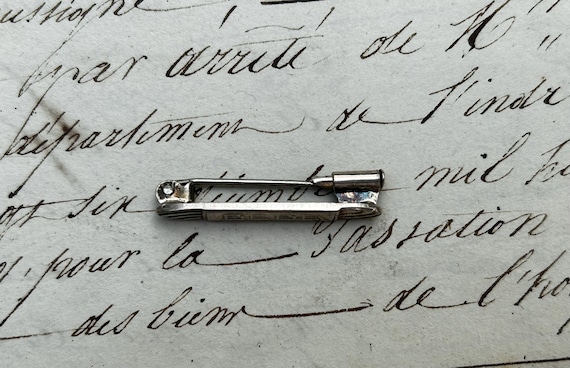 soussigné
par arrêté de M
département de l'indr
six mil h
pour la Passation
des biens de l'ho